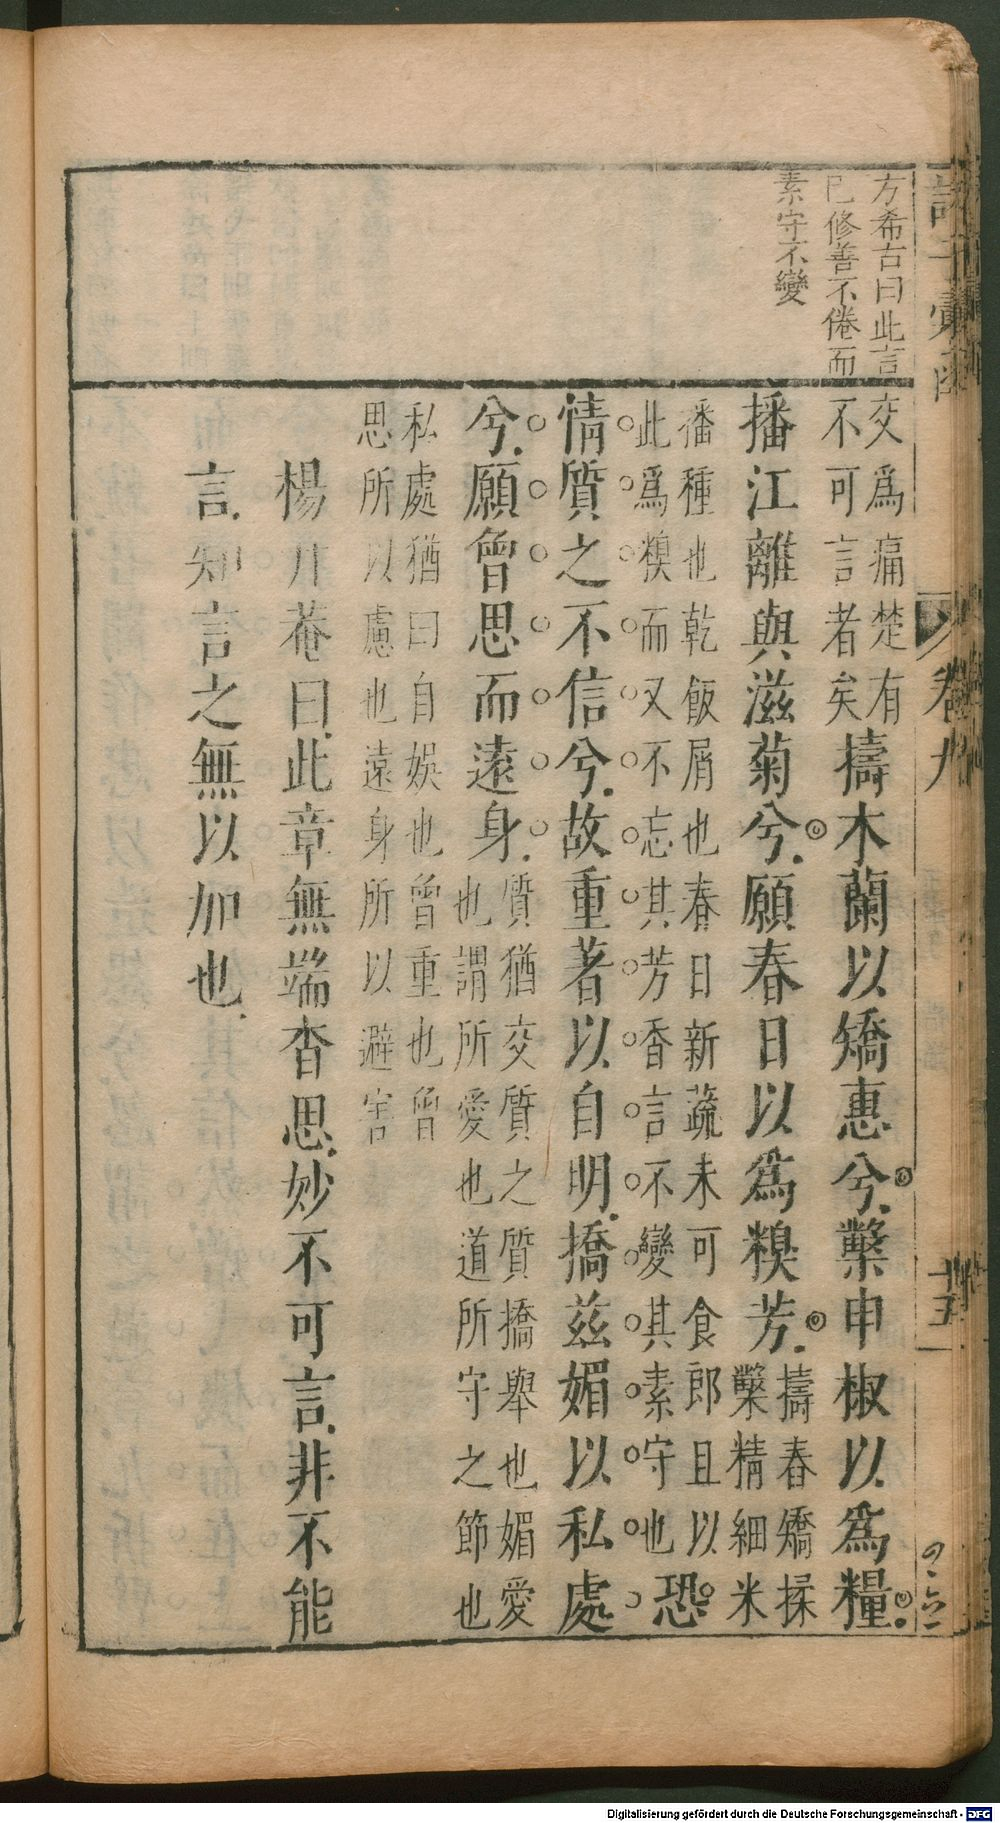 方希古曰此言
已修善不倦而
素守不變
交爲痛楚有
不可言者矣
擣木蘭以矯惠兮鑿申椒以爲糧
播江離與滋菊兮願春日以爲糗芳
擣舂矯揉
鑿精細米
播種也乾飯屑也春日新蔬未可食郎且以
此爲糗而又不忘其芳香言不變其素守也
恐
情質之不信兮故重著以自明撟兹媚以私處
兮願曾思而遠身
質猶交質之質撟舉也媚愛
也謂所愛也道所守之節也
私處猶曰自娛也曾重也曾
思所以慮也遠身所以避害
楊升菴曰此章無端杳思妙不可言非不能
言知言之無以加也
卷九
十五
Digitalisierung gefördert durch die Deutsche Forschungsgemeinschaft - DFG